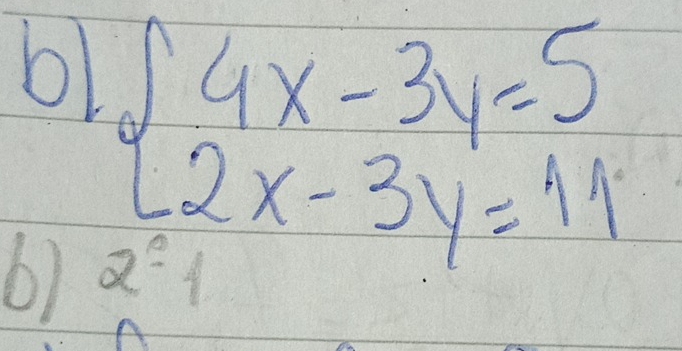 b) { 4x - 3y = 5
2x - 3y = 11
b) 2:1